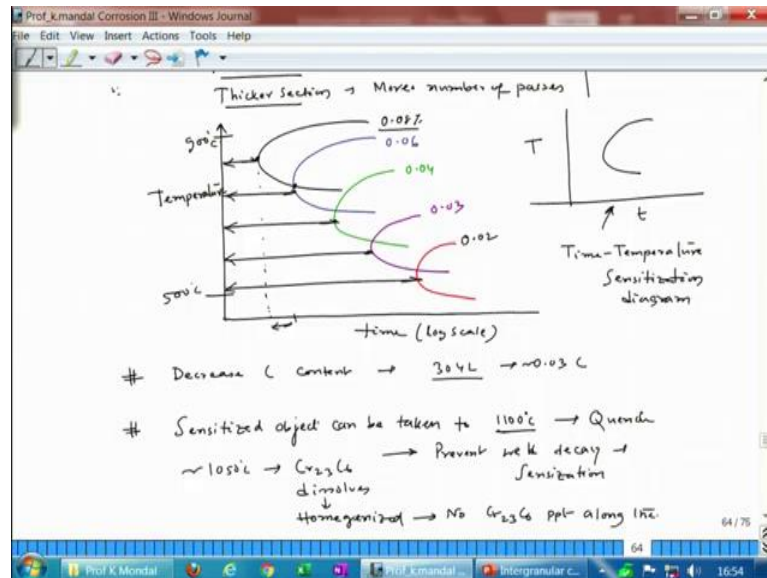 Prof_k.mandal Corrosion III - Windows Journal
File Edit View Insert Actions Tools Help
Thicker section → More number of passes
900°C
0.08%
0.06
0.04
0.03
0.02
Temperature
500°C
time (log scale)
T
t
Time-Temperature
Sensitization
diagram
# Decrease C content → 304L → ~0.03 C
# Sensitized object can be taken to 1100°C → Quench
~1050°C → Cr23C6 → Prevent weld decay →
dissolves Sensization
↓
Homogenized → No Cr23C6 ppt along the
64 / 75
64
Prof K Mondal
Prof_k.mandal ...
Intergranular c...
16:54